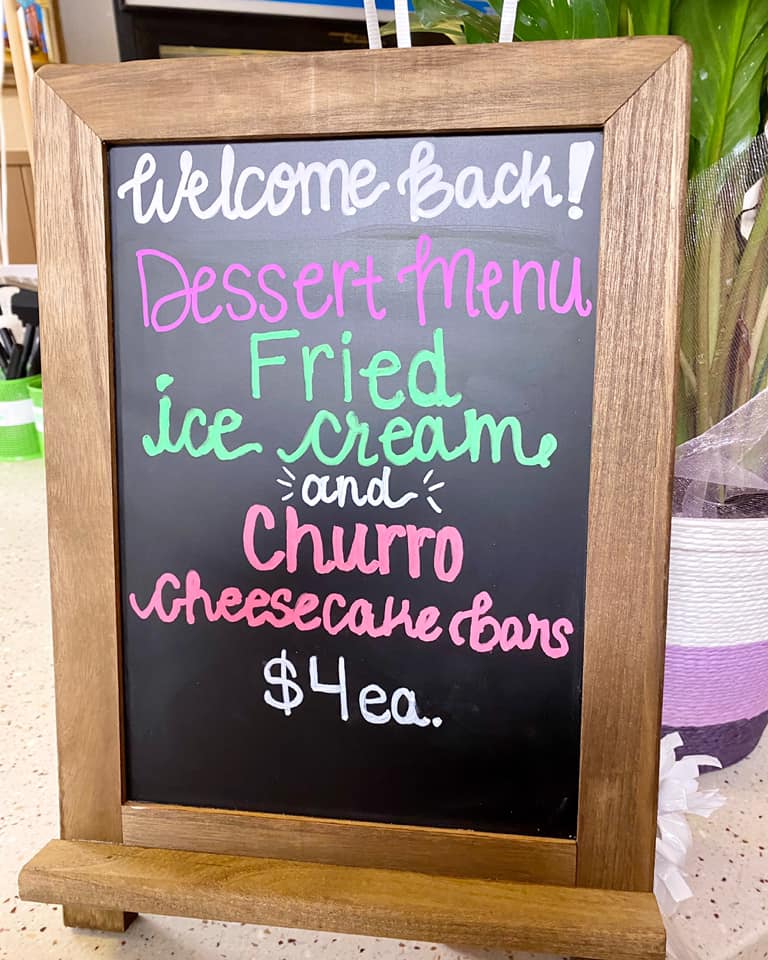 Welcome Back!
Dessert Menu
Fried
ice cream
and
Churro
Cheesecake bars
$4 ea.